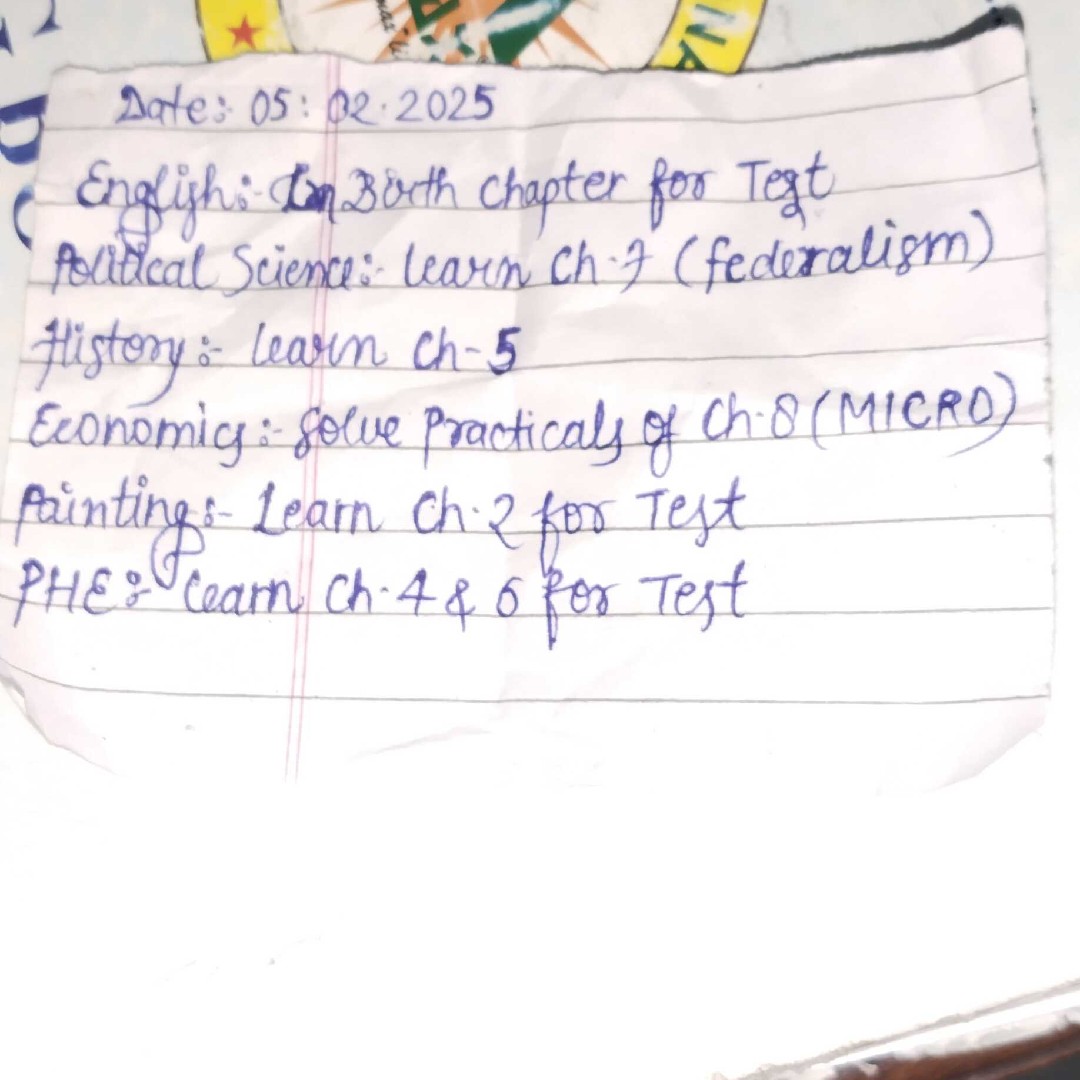 NA
Date:- 05:02.2025
English:- Birth Chapter for Test
Political Science:- learn Ch-7 (federalism)
History:- learn Ch-5
Economics:- Solve Practicals of Ch-8 (MICRO)
Painting:- Learn Ch-2 for Test
PHE:- learn Ch-4 & 6 for Test